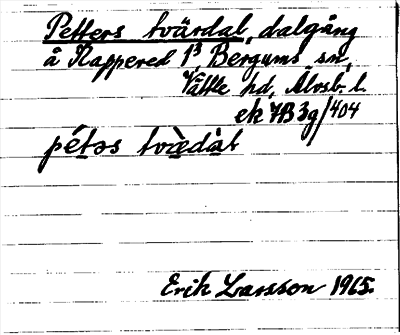 Petters tvärdal, dalgång
å Rappered 1³, Bergums sn,
Vättle hd, Älvsb. l.
ek 7B3g/404
pétəs tvæ̀dàl
Erik Larsson 1965.